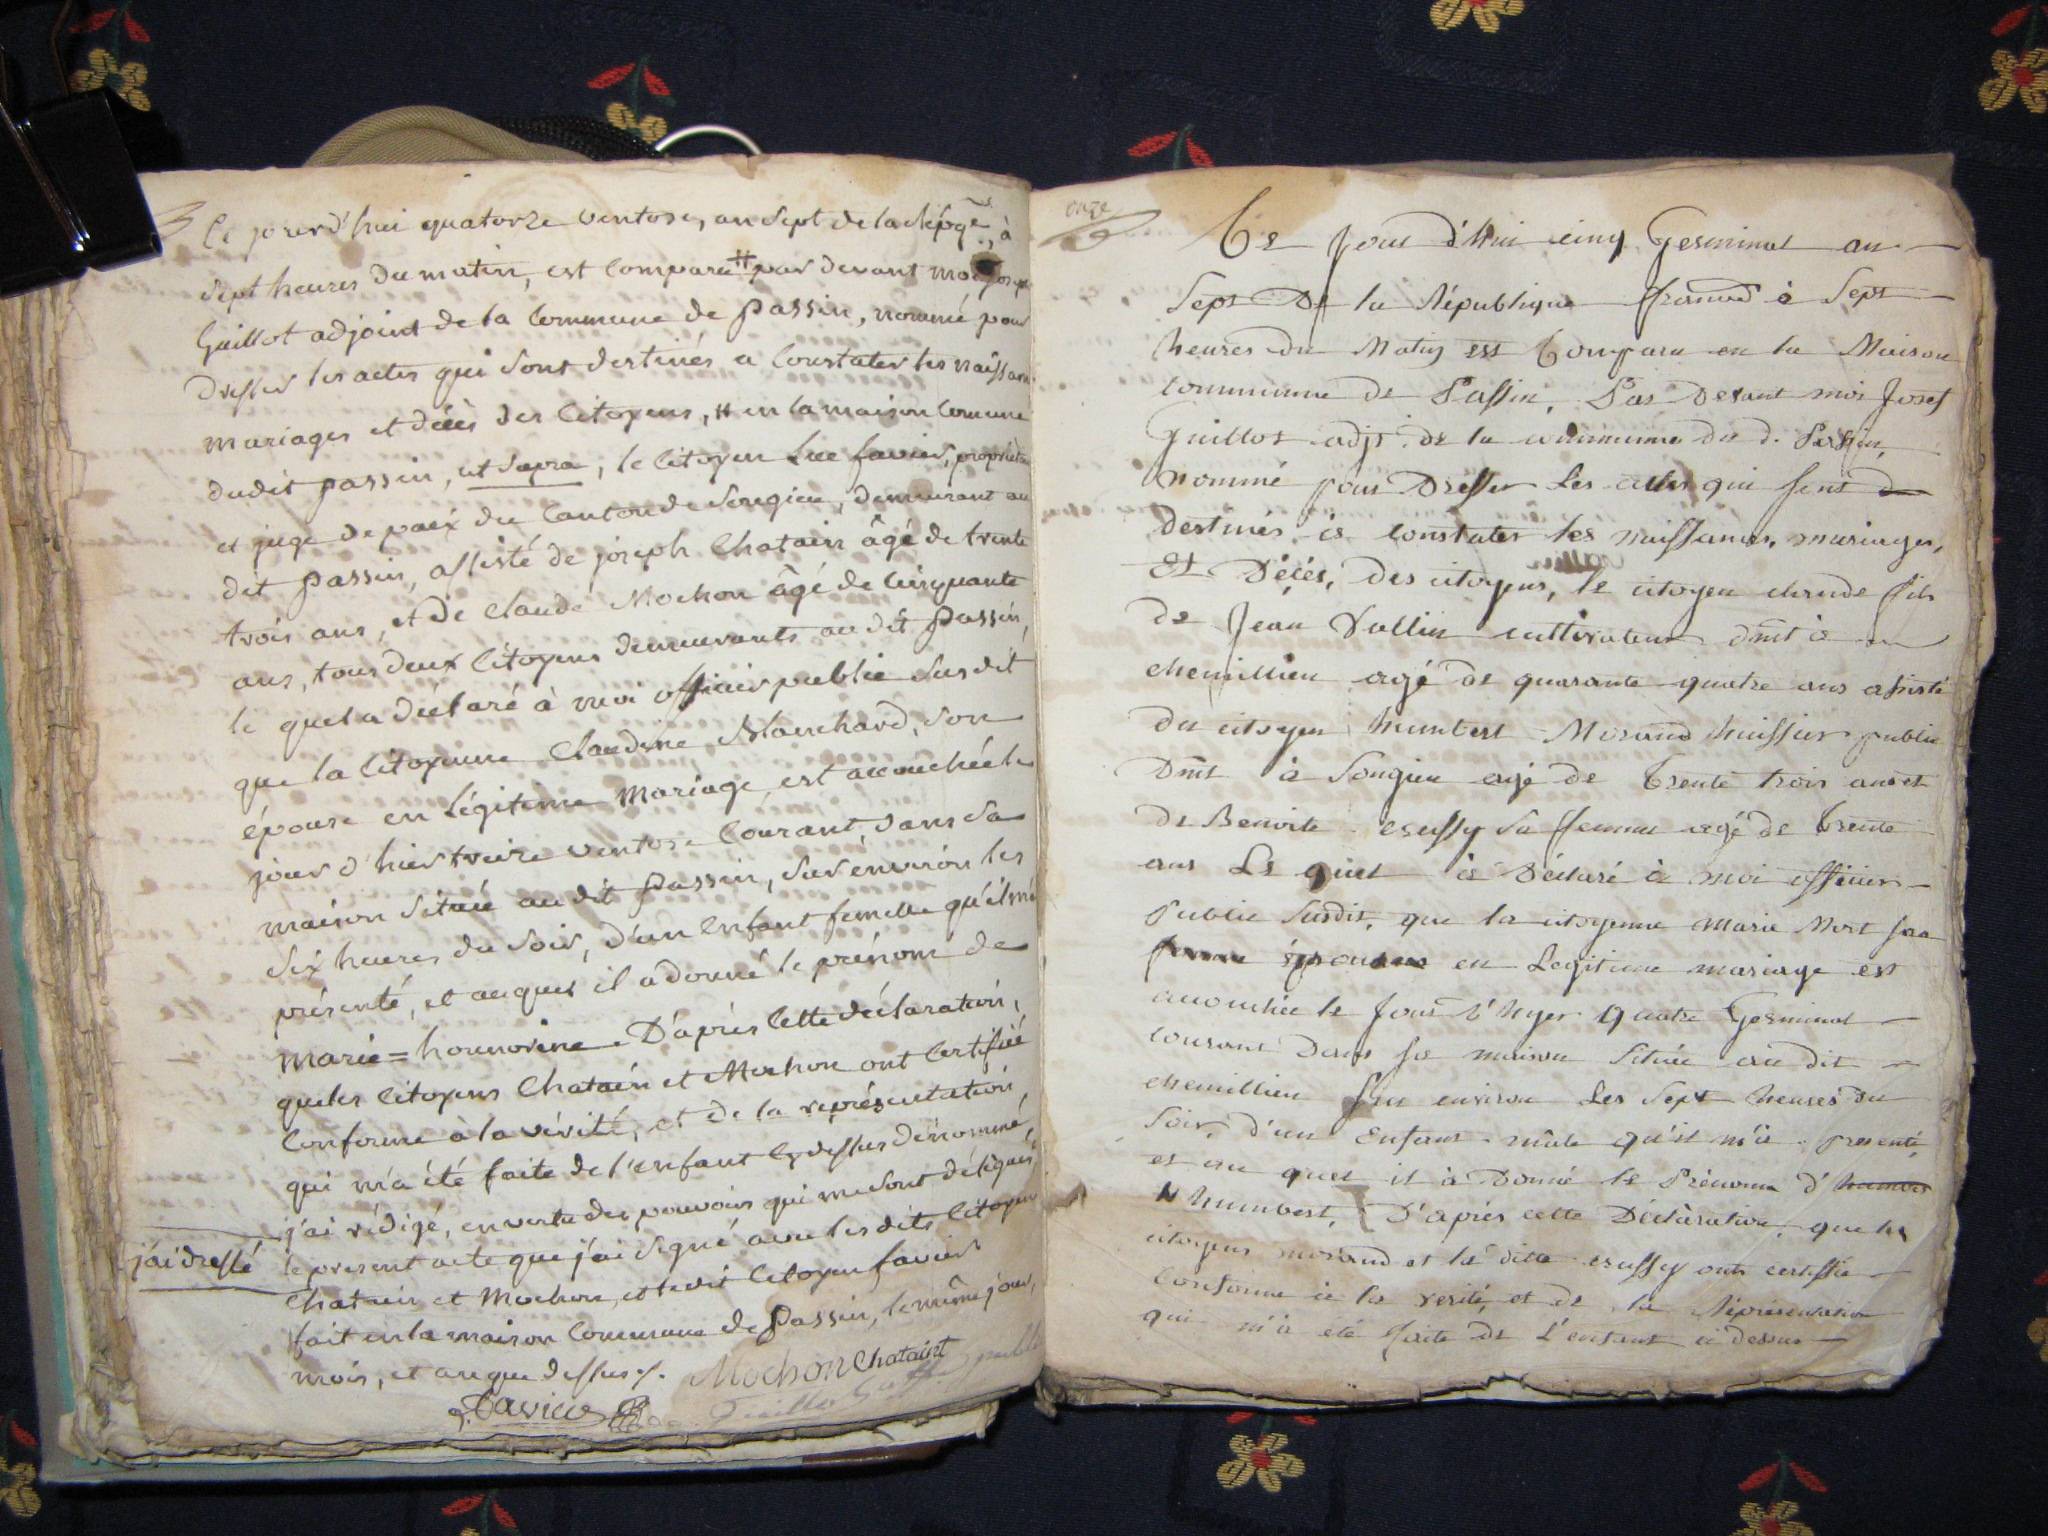 Ce jourd'hui quatorze ventose, an Sept de la Répque, à
Sept heures du matin, est Comparu # par devant moi Joseph
Guillot adjoint de la Commune de passin, nommé pour
dresser les actes qui sont destinés a Constater les naissan
mariages et décès des Citoyens, # en la maison Comune
dudit passin, ut supra, le Citoyen Luc favier, propriétai
et juge de paix du Canton de Songieu, demeurant au
dit passin, assisté de joseph Chatain âgé de trente
trois ans, et de Claude Mochon âgé de Cinquante
ans, tous deux Citoyens demeurants au dit passin,
le quel a déclaré à moi officier public Susdit
que la Citoyenne Claudine Blanchard, Son
épouse en légitime Mariage, est accouchée le
jour d'hier treize ventose Courant, dans Sa
maison Située au dit passin, Sur environ les
Six heures du Soir, d'un Enfant femelle qu'il m'a
présenté, et auquel il a donné le prénom de
marie=hounorine. D'après Cette déclaration,
que les Citoyens Chatain et Mochon ont Certifié
Conforme à la vérité, et de la représentation,
qui m'a été faite de l'enfant Cy dessus dénommé,
j'ai rédigé, en vertu des pouvoirs qui me sont délégués
j'ai dressé
le present acte que j'ai Signé avec les dits Citoyens
Chatain et Mochon, et le dit Citoyen favier
fait en la maison Commune de passin, le même jour,
mois, et an que dessus ./.
Mochon Chataint
Favier
onze
Ce Jour d'Hui cinq Germinal an
Sept De la République francaise à Sept
heures du Matin est Comparu en la Maison
commune de Passin, Par Devant moi Josef
Guillot adjt. de la commune du d. Passin,
nommé pour Dresser Les actes qui sont
destinés à constater les naissances, mariages,
Et Décés, des citoyens, le citoyen claude fils
de Jean Vallin cultivateur dmt à
chemillieu agé de quarante quatre ans assisté
du citoyen humbert Morand huissier public
Dmt à Songieu agé de Trente trois ans et
de Benoite crussy Sa femme agé de Trente
ans Le quel à Déclaré à moi officier
Public Susdit, que la citoyenne Marie Mort
femme épouse en Legitime mariage est
accouchée le Jour d'hyer Quatre Germinal
courant Dans sa maison Située au dit
chemillieu Sur environ Les Sept heures du
Soir, d'un Enfant mâle qu'il m'à présenté,
et au quel il à Donné le Prénom d' humber
humbert, D'après cette Déclaration, que les
citoyens morand et la ditte crussy ont certiffié
conforme à la verité, et de la Réprésentation
qui m'à été faite de L'enfant ci dessus